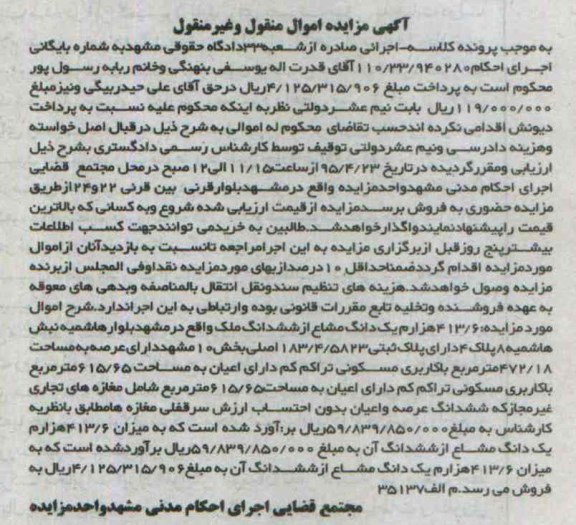 آگهی مزایده اموال منقول و غیرمنقول
به موجب پرونده کلاسه-اجرائی صادره از شعبه ۳۳ دادگاه حقوقی مشهد به شماره بایگانی
اجرای احکام ۱۱۰/۳۳/۹۴۰۲۸۰ آقای قدرت اله یوسفی بنهنگی و خانم ربابه رسول پور
محکوم است به پرداخت مبلغ ۴/۱۲۵/۳۱۵/۹۰۶ ریال در حق آقای علی حیدربیگی و نیز مبلغ
۱۱۹/۰۰۰/۰۰۰ ریال بابت نیم عشر دولتی نظر به اینکه محکوم علیه نسبت به پرداخت
دیونش اقدامی نکرده اند حسب تقاضای محکوم له اموالی به شرح ذیل در قبال اصل خواسته
و هزینه دادرسی و نیم عشر دولتی توقیف توسط کارشناس رسمی دادگستری بشرح ذیل
ارزیابی و مقرر گردیده در تاریخ ۹۵/۴/۲۳ از ساعت ۱۱/۱۵ الی ۱۲ صبح در محل مجتمع قضایی
اجرای احکام مدنی مشهد واحد مزایده واقع در مشهد بلوار قرنی بین قرنی ۲۲ و ۲۴ از طریق
مزایده حضوری به فروش برسد مزایده از قیمت ارزیابی شده شروع و به کسانی که بالاترین
قیمت را پیشنهاد نمایند واگذار خواهد شد. طالبین به خرید می توانند جهت کسب اطلاعات
بیشتر پنج روز قبل از برگزاری مزایده به این اجرا مراجعه تا نسبت به بازدید آنان از اموال
مورد مزایده اقدام گردد ضمنا حداقل ۱۰ درصد از بهای مورد مزایده نقدا و فی المجلس از برنده
مزایده وصول خواهد شد. هزینه های تنظیم سند و نقل انتقال بالمناصفه و بدهی های معوقه
به عهده فروشنده و تخلیه تابع مقررات قانونی بوده و ارتباطی به این اجرا ندارد. شرح اموال
مورد مزایده: ۴۱۳/۶ هزارم یک دانگ مشاع از ششدانگ ملک واقع در مشهد بلوار هاشمیه نبش
هاشمیه ۸ پلاک ۴ دارای پلاک ثبتی ۱۸۳/۴/۵۸۲۳ اصلی بخش ۱۰ مشهد دارای عرصه به مساحت
۴۷۲/۱۸ مترمربع با کاربری مسکونی تراکم کم دارای اعیان به مساحت ۶۱۵/۶۵ مترمربع
با کاربری مسکونی تراکم کم دارای اعیان به مساحت ۶۱۵/۶۵ مترمربع شامل مغازه های تجاری
غیرمجاز که ششدانگ عرصه و اعیان بدون احتساب ارزش سرقفلی مغازه ها مطابق با نظریه
کارشناس به مبلغ ۵۹/۸۳۹/۸۵۰/۰۰۰ ریال برآورد شده است که به میزان ۴۱۳/۶ هزارم
یک دانگ مشاع از ششدانگ آن به مبلغ ۵۹/۸۳۹/۸۵۰/۰۰۰ ریال برآورد شده است که به
میزان ۴۱۳/۶ هزارم یک دانگ مشاع از ششدانگ آن به مبلغ ۴/۱۲۵/۳۱۵/۹۰۶ ریال به
فروش می رسد. م الف ۳۵۱۳۷
مجتمع قضایی اجرای احکام مدنی مشهد واحد مزایده